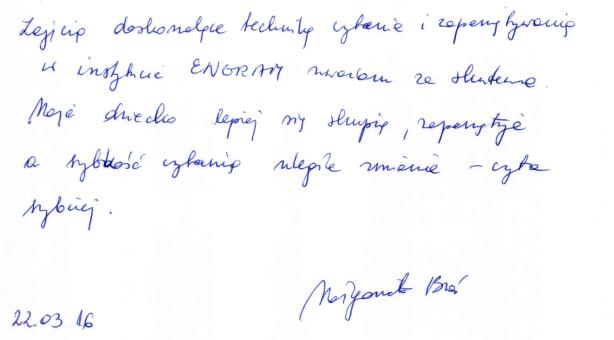 Zajęcia doskonalące technikę czytania i zapamiętywania
w instytucie ENGRAM uważam za skuteczne.
Moje dziecko lepiej się skupia, zapamiętuje
a szybkość czytania uległa zmianie - czyta
szybciej.
Małgorzata Braś
22.03 16